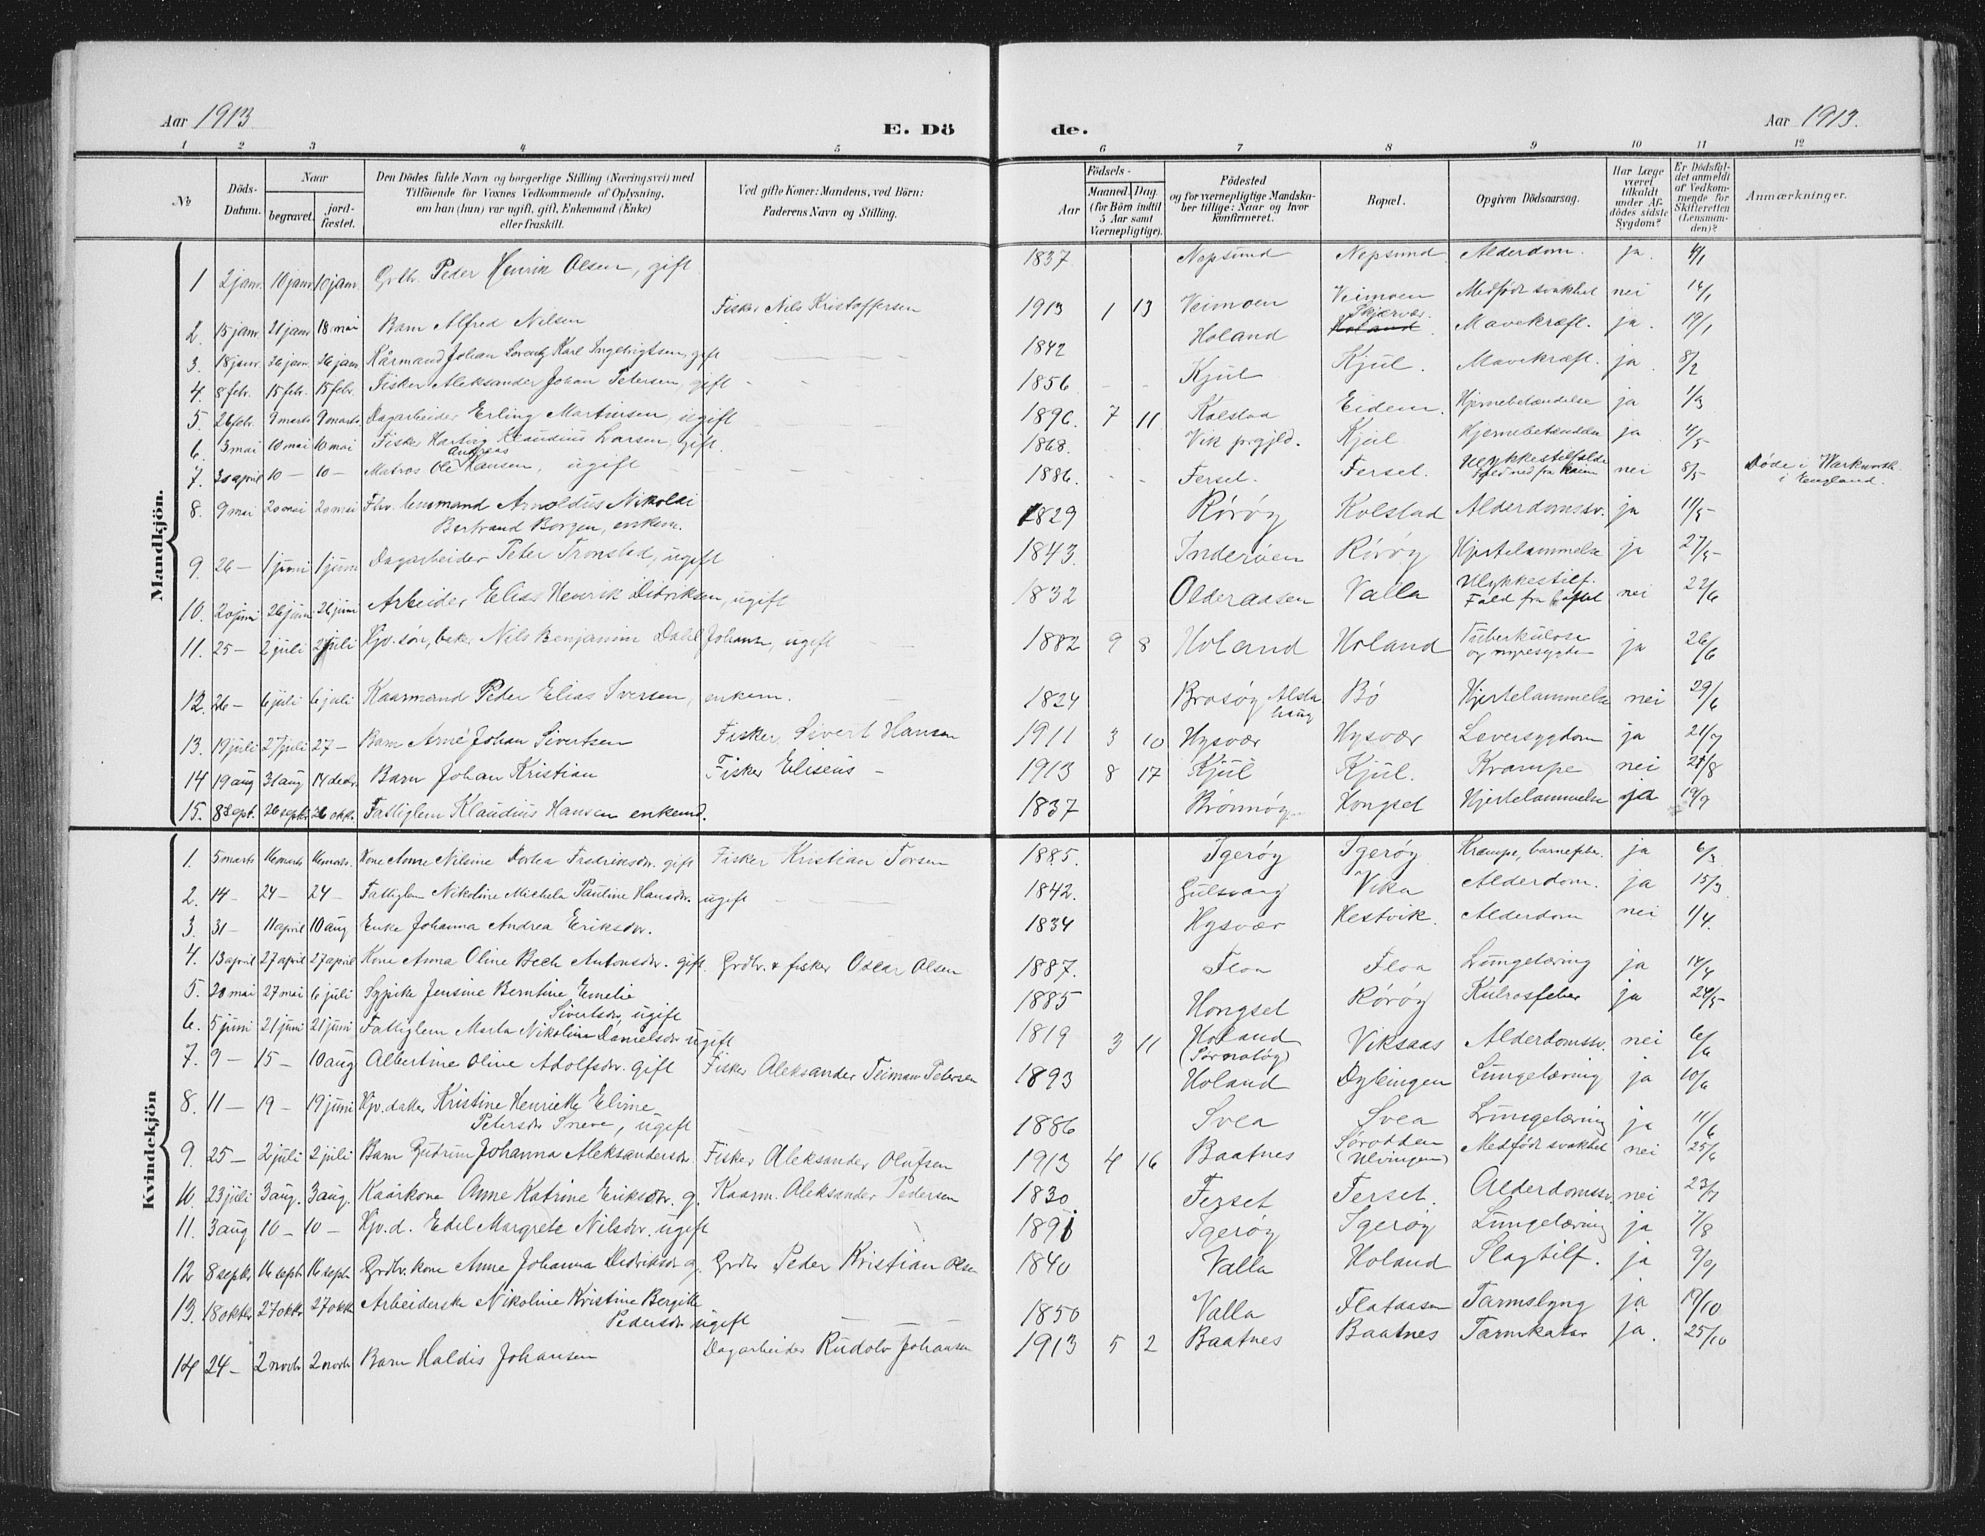 Aar 1913.
E. Dö
1 2 3 4 5
№
Döds-
Datum.
Naar
begravet.
jord-
fæstet.
Den Dödes fulde Navn og borgerlige Stilling (Næringsvei) med
Tilföiende for Voxnes Vedkommende af Oplysning,
om han (hun) var ugift, gift, Enkemand (Enke)
eller fraskilt.
Ved gifte Koner: Mandens, ved Börn:
Faderens Navn og Stilling.
Mandkjön.
1 2 janr. 10 janr. 10 janr. Grdbr. Peder Henrik Olsen, gift
2. 15 janr. 21 janr. 18 mai Barn Alfred Nilsen Fisker Nils Kristoffersen
3. 18 janr. 26 janr. 26 janr. Kårmand Johan Lorentz Karl Ingebrigtsen, gift
4. 8 febr. 15 febr. 15 febr. Fisker Aleksander Johan Petersen, gift
5. 26 febr. 9 marts 9 marts Dagarbeider Erling Martinsen, ugift
6. 3 mai 10 mai 10 mai Fisker Hartvig Klaudius Larsen, gift.
7. 30 april 10 — 10 — Matros Ole Andreas Hansen, ugift
8. 9 mai 20 mai 20 mai Fhv. lensmand Arnoldus Nikolai
Bertrand Borgen, enkem.
9. 26 — 1 juni 1 juni Dagarbeider Peter Tronstad, ugift
10. 20 juni 26 juni 26 juni Arbeider Elias Henrik Didriksen, ugift
11. 25 — 2 juli 2 juli Gjv. søn, bek. Nils Benjamin Dahl Johans., ugift
12. 26 — 6 juli 6 juli Kaarmand Peder Elias Iversen, enkem.
13. 19 juli 27 juli 27 — Barn Arne Johan Sivertsen Fisker Sivert Hansen
14 19 aug 31 aug 14 decbr. Barn Johan Kristian Fisker Eliseus —
15. 8 sept. 26 septr. 26 oktr. Fattiglem Klaudius Hansen enkemd.
Kvindekjön
1. 5 marts 16 marts 16 marts. Kone Anne Nilsine Dortea Fredriksdr. gift Fisker Kristian Torsen
2. 14 — 24 — 24 — Fattiglem Nikoline Michela Pauline Hansdr. ugift
3. 31 — 11 april 10 aug Enke Johanna Andrea Eriksdr.
4. 13 april 27 april 27 april Kone Anna Oline Bech Antonsdr. gift. Grdbr. & fisker Oscar Olsen
5. 20 mai 27 mai 6 juli Sypike Jensine Berntine Emelie
Sivertsdr, ugift
6. 5 juni 21 juni 21 juni Fattiglem Marta Nikoline Danielsdr ugift
7. 9 — 15 — 10 aug Albertine Oline Adolfsdr. gift Fisker Aleksander Teiman Petersen
8. 11 — 19 — 19 juni Gjv. datter Kristine Henriette Eline
Petersdr Sneve, ugift
9. 25 — 2 juli 2 juli Barn Gudrun Johanna Aleksandersdr. Fisker Aleksander Olufsen
10. 23 juli 3 aug. 3 aug. Kaarkone Anne Katrine Eriksdr. g. Kaarm. Aleksander Pedersen
11. 3 aug 10 — 10 — Gjv. d. Edel Margrete Nilsdr. ugift
12 8 septr 16 septr 16 septr Grdbr. kone Anne Johanna Didriksdr g. Grdbr Peder Kristian Olsen
13. 18 oktr 27 oktr 27 oktr Arbeiderske Nikoline Kristine Bergitte
Pedersdr ugift
14 24 — 2 novbr 2 novbr Barn Haldis Johansen Dagarbeider Rudolv Johansen
de.
Aar 1913.
6 7 8 9 10 11 12
Födsels-
Aar
Maaned. Dag.
(for Börn indtil
5 Aar samt
Værnepligtige).
Födested
og for værnepligtige Mandska-
ber tillige: Naar og hvor
konfirmeret.
Bopæl.
Opgiven Dödsaarsag.
Har Læge
været
tilkaldt
under Af-
dödes sidste
Sygdom?
Er Dödsfal-
det anmeldt
af Vedkom-
mende for
Skifteretten
(Lensman-
den)?
Anmærkninger.
1837 Nepsund Nepsund Alderdom. ja.
1913 1 13 Veimoen Veimoen Medfødt svakhet nei 16/1
1842 Holand Skjærvær. Holand Mavekræft. ja. 19/1
1856 - - Kjul Kjul. Mavekræft. ja 8/2
1896 7 11 Kolstad Eidem. Hjernebetændelse ja 1/3
1868. Vik prgjld. Kjul Hjernebetændelse ja 4/5
1886. - - Ferset. Ferset. Ulykkestilfælde
Fald ned fra raaen nei 8/5 Døde i Warkworth
i England.
1829 Rørøy Kolstad Alderdomssv. ja 11/5
1843. Inderøen Rørøy Hjertelammelse ja 27/5
1832 Olderaasen Valla Ulykkestilf.
Fald fra loftet nei 22/6
1882 9 8 Holand Holand Tuberkulose
og nyresygdom ja 26/6
1824 Brasøy Alsta
haug Bö Hjertelammelse nei 29/6
1911 3 10 Hysvær Hysvær Leversygdom ja 21/7
1913 8 17 Kjul Kjul. Krampe nei 21/8
1837 Brönnöy Hongset Hjertelammelse ja 19/9
1885. Igerøy Igerøy Krampe, barnefebr. ja 6/3
1842. Gulsvang Vika Alderdom. ja 15/3
1834 Hysvær Hestvik. Alderdom nei 1/4.
1887. Floa Floa Lungetæring ja 14/4
1885 Hongset Rørøy Kulrosfeber ja 24/5
1819 3 11 Holand
(Sørnatøy) Viksaas Alderdomssv. nei 6/6
1893 Holand Dybingen Lungetæring ja 10/6
1886 Svea Svea Lungetæring ja 11/6
1913 4 16 Baatnes Sørodden
(Ulvingen) Medfødt svakhet nei 25/6
1830 Ferset Ferset. Alderdomssv. nei 23/7
1891 Igerøy Igerøy Lungetæring ja 7/8
1840 Valla Holand Slagtilf. ja 9/9
1850 Valla Flataasen Tarmslyng ja 19/10
1913 5 2 Baatnes Baatnes Tarmkatar ja. 25/10